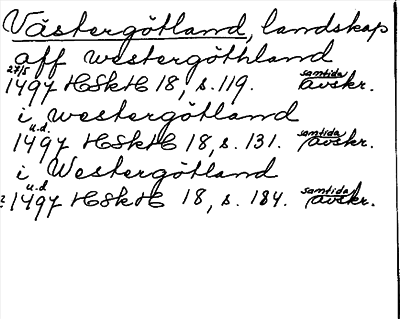 Västergötland, landskap
aff westergöthland
27/5 1497 HSkH 18, s. 119. samtida avskr.
i westergötland
u.d. 1497 HSkH 18, s. 131. samtida avskr.
i Westergötland
? u.d. 1497 HSkH 18, s. 184. samtida avskr.